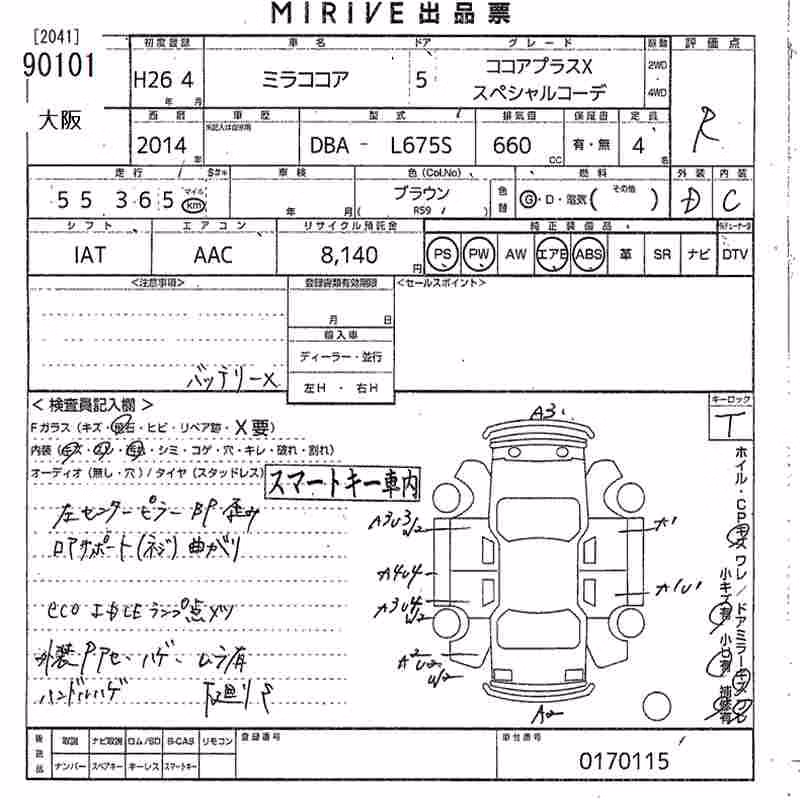 MIRIVE 出品票
[2041]
90101
大阪
初度登録 車名 ドア グレード 駆動 評価点
H26 4 年 月 ミラココア 5 ココアプラスX スペシャルコーデ 2WD ・ 4WD
R
西暦 車歴 型式 排気量 保証書 定員
2014 年 DBA - L675S 660 CC 有・無 4 名
走行 車検 色(Col.No) 燃料 外装 内装
55 365 マイル km 年 月 ブラウン ( R59 / ) 色替 G・D・電気( その他 ) D C
シフト エアコン リサイクル預託金 純正装備品
IAT AAC 8,140 円 PS PW AW エアB ABS 革 SR ナビ DTV
<注意事項> 登録書類有効期限 <セールスポイント>
月 日
輸入車
ディーラー・並行
バッテリーX 左H ・ 右H
<検査員記入欄> キーロック
Fガラス(キズ・飛石・ヒビ・リペア跡・X要) T
内装(キズ・・・シミ・コゲ・穴・キレ・破れ・割れ)
オーディオ(無し・穴)/タイヤ(スタッドレス) スマートキー車内
左センターピラー BP 歪み
ロアサポート(ネジ)曲がり
eco ランプ点メツ
外装 ハゲ ムラ有
ハンドルハゲ 下廻りS
A3
A3U3 W2
A4U4
A3U4 W2
A2 U2 W2
A1
A1U1
A2
ホイル・CPキズ ワレ/ドアミラーキズ ワレ
小キズ有 小凹有 補修有
後送品 取説 ナビ取説 ロム/SD B-CAS リモコン 登録番号 車台番号
ナンバー スペアキー キーレス スマートキー 0170115